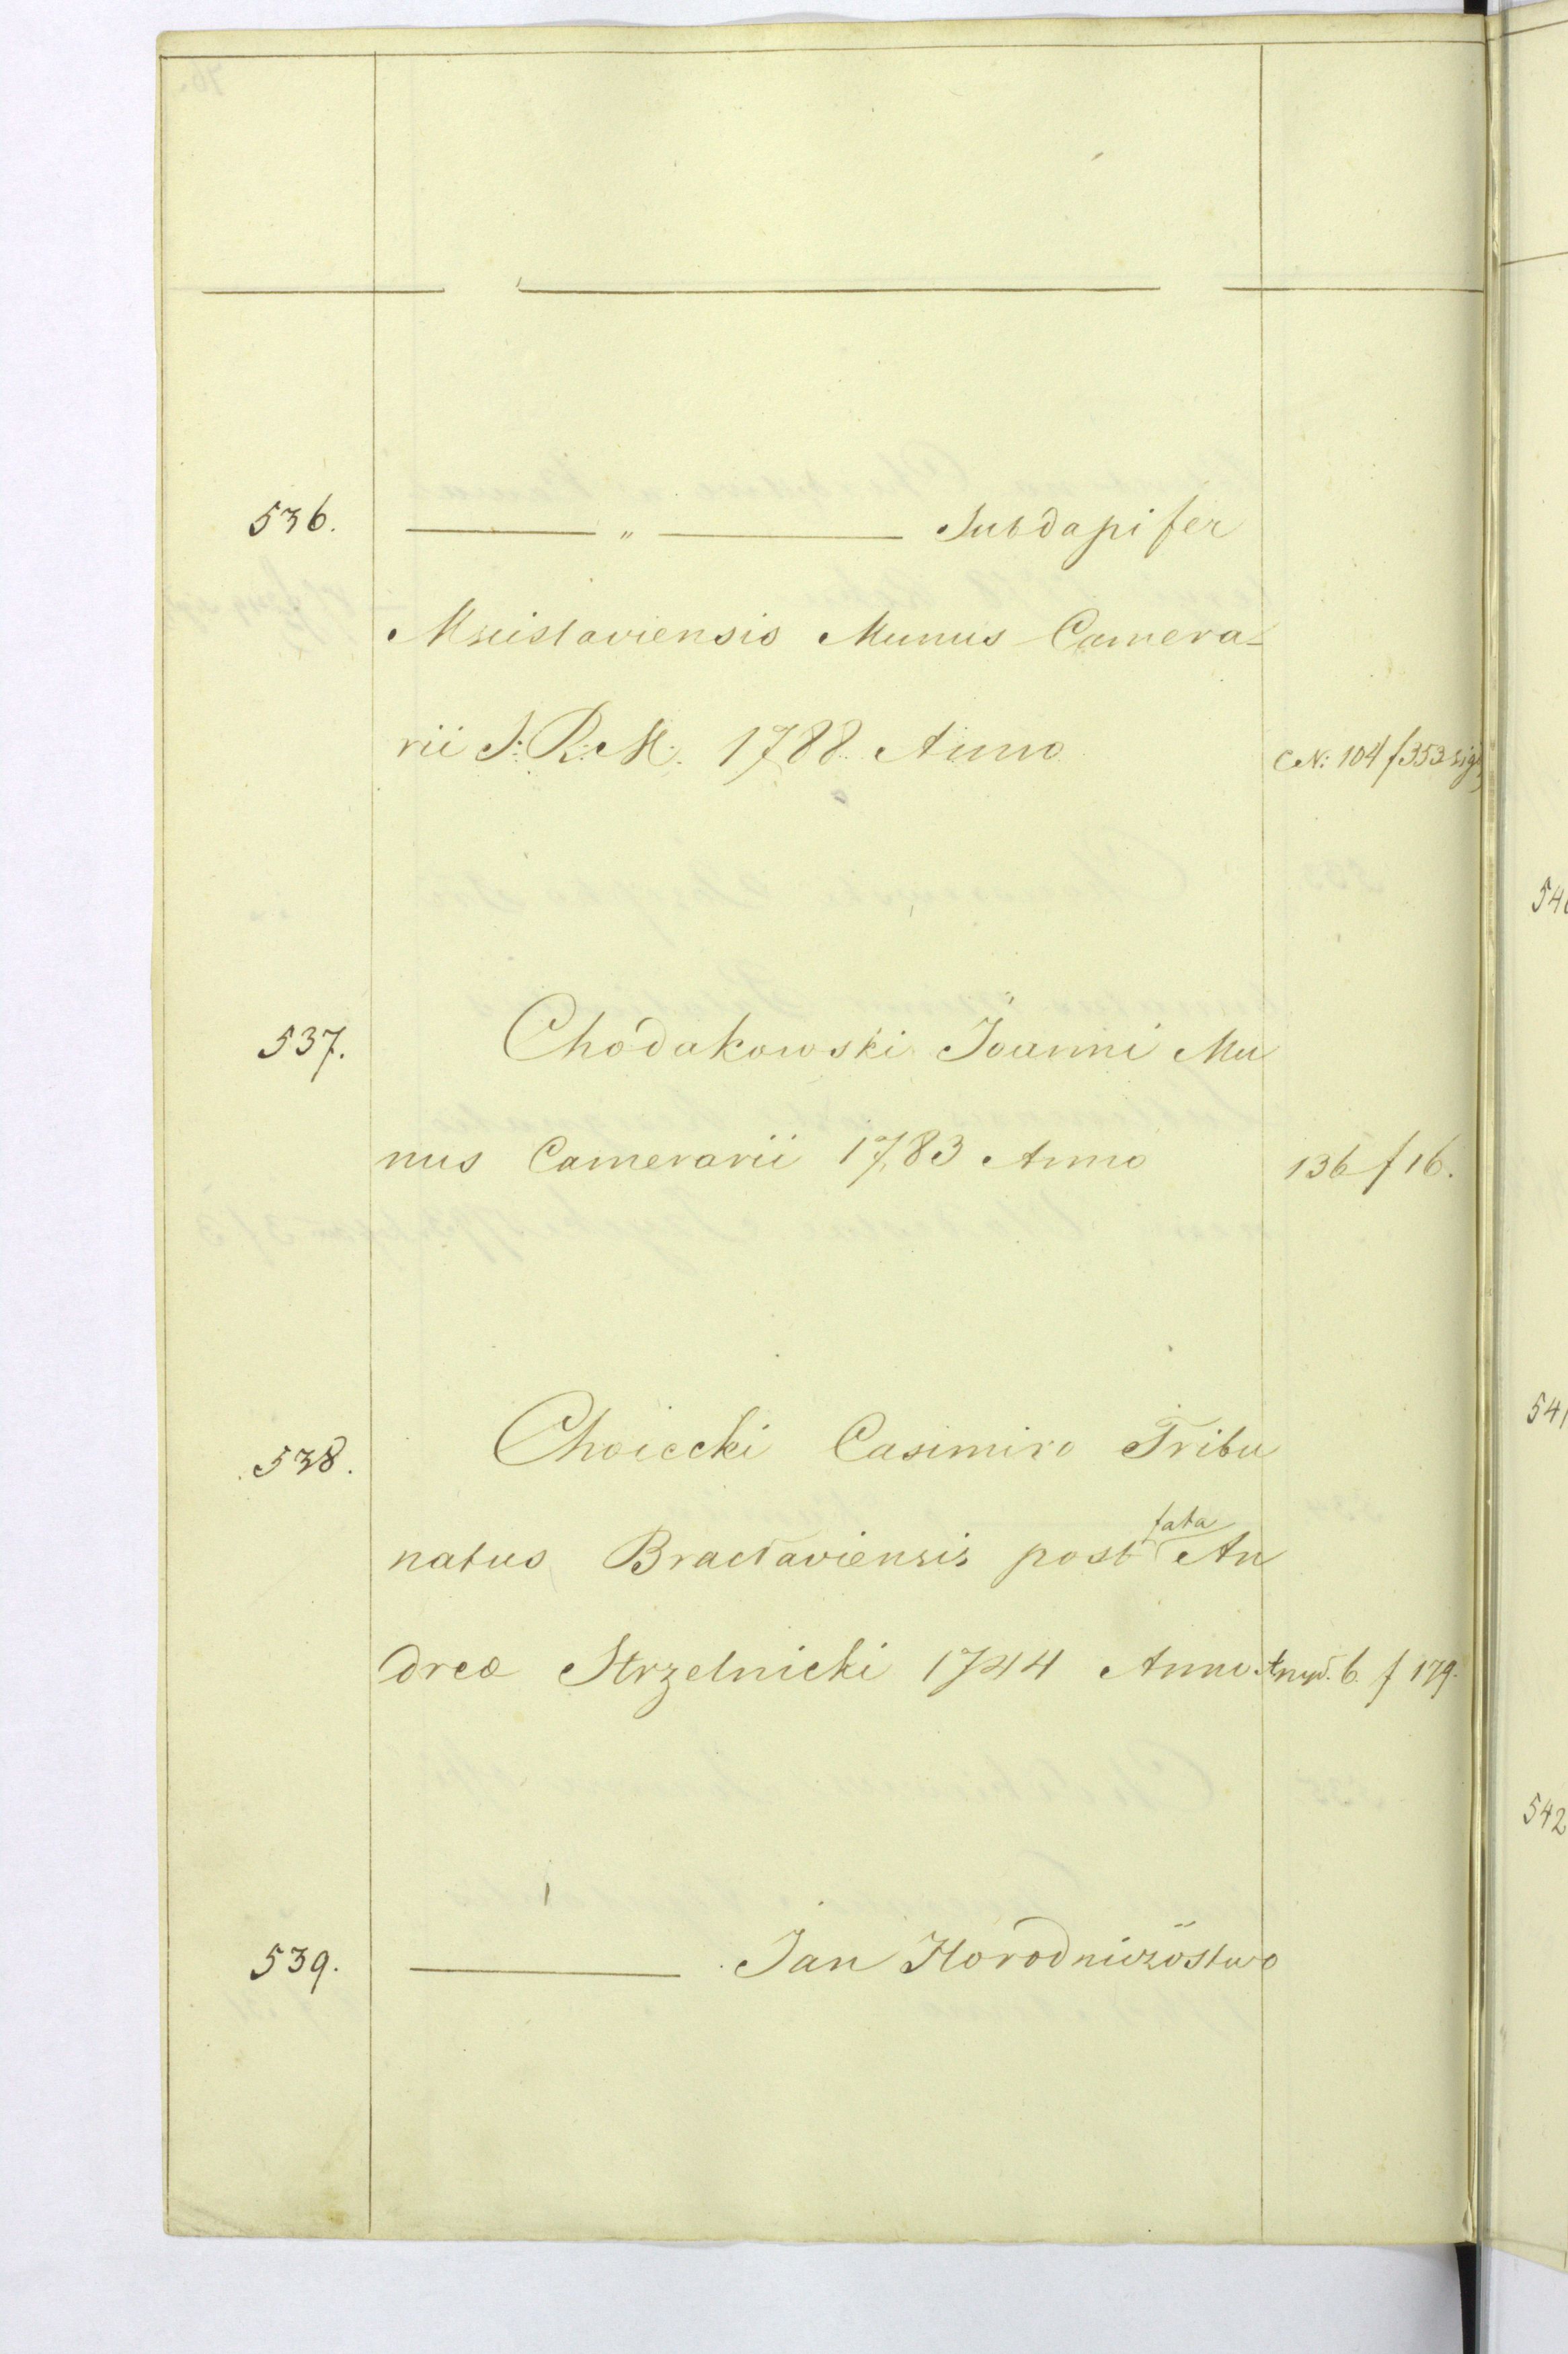 536. — " — Subdapifer
Mscislaviensis Munus Camera=
rii S: R: M. 1788 Anno N: 104 f 353 sig
537. Chodakowski Joanni Mu
nus Camerarii 1783 Anno 136 f 16.
538. Choiecki Casimiro Tribu
natus Braclaviensis post fata An
dreæ Strzelnicki 1744 Anno 6. f 179.
539. — Jan Horodniczostwo
541
542